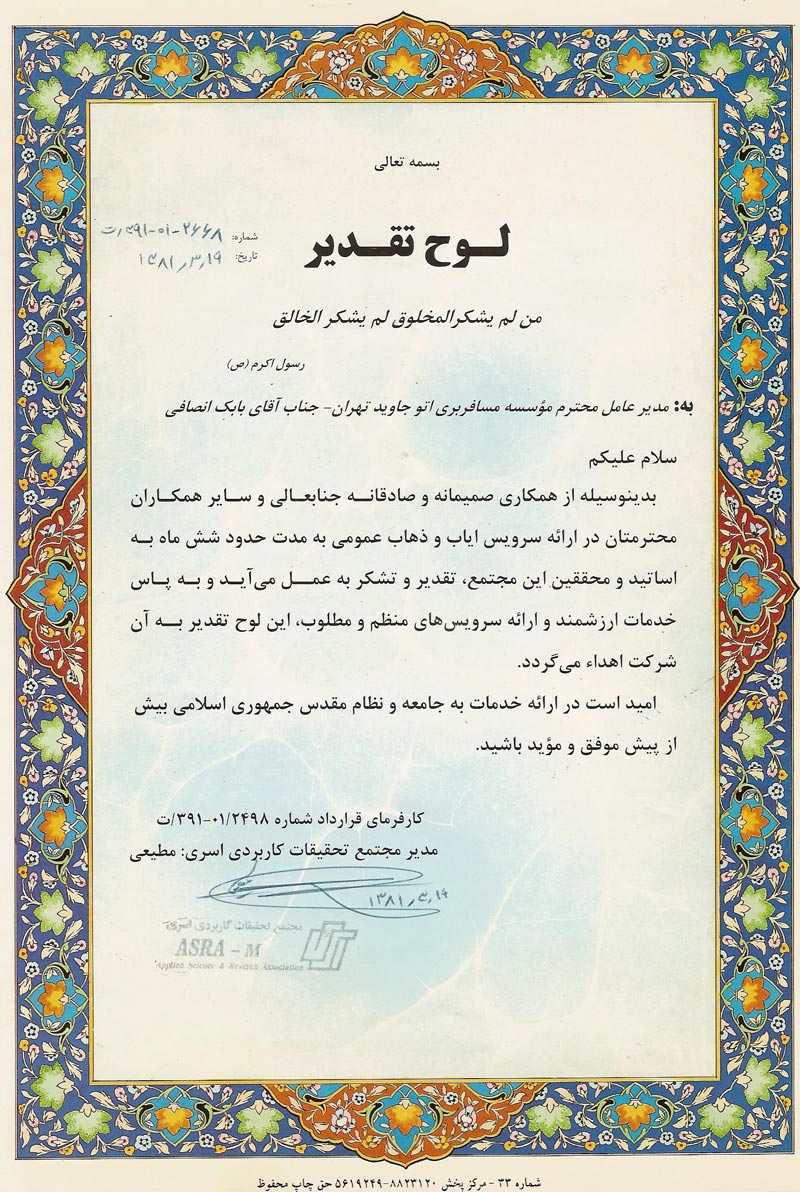 بسمه تعالی
لوح تقدیر
شماره: ۳۹۱-۰۱-۲۶۶۸/ت
تاریخ: ۱۳۸۱/۳/۱۹
من لم یشکرالمخلوق لم یشکر الخالق
رسول اکرم (ص)
به: مدیر عامل محترم مؤسسه مسافربری اتو جاوید تهران- جناب آقای بابک انصافی
سلام علیکم
بدینوسیله از همکاری صمیمانه و صادقانه جنابعالی و سایر همکاران
محترمتان در ارائه سرویس ایاب و ذهاب عمومی به مدت حدود شش ماه به
اساتید و محققین این مجتمع، تقدیر و تشکر به عمل می‌آید و به پاس
خدمات ارزشمند و ارائه سرویس‌های منظم و مطلوب، این لوح تقدیر به آن
شرکت اهداء می‌گردد.
امید است در ارائه خدمات به جامعه و نظام مقدس جمهوری اسلامی بیش
از پیش موفق و مؤید باشید.
کارفرمای قرارداد شماره ۳۹۱-۰۱/۲۴۹۸/ت
مدیر مجتمع تحقیقات کاربردی اسری: مطیعی
۱۳۸۱/۳/۱۹
مجتمع تحقیقات کاربردی اسری
ASRA - M
Applied Science & Research Association
شماره ۳۳ - مرکز پخش ۸۸۲۳۱۲۰-۵۶۱۹۲۴۹ حق چاپ محفوظ